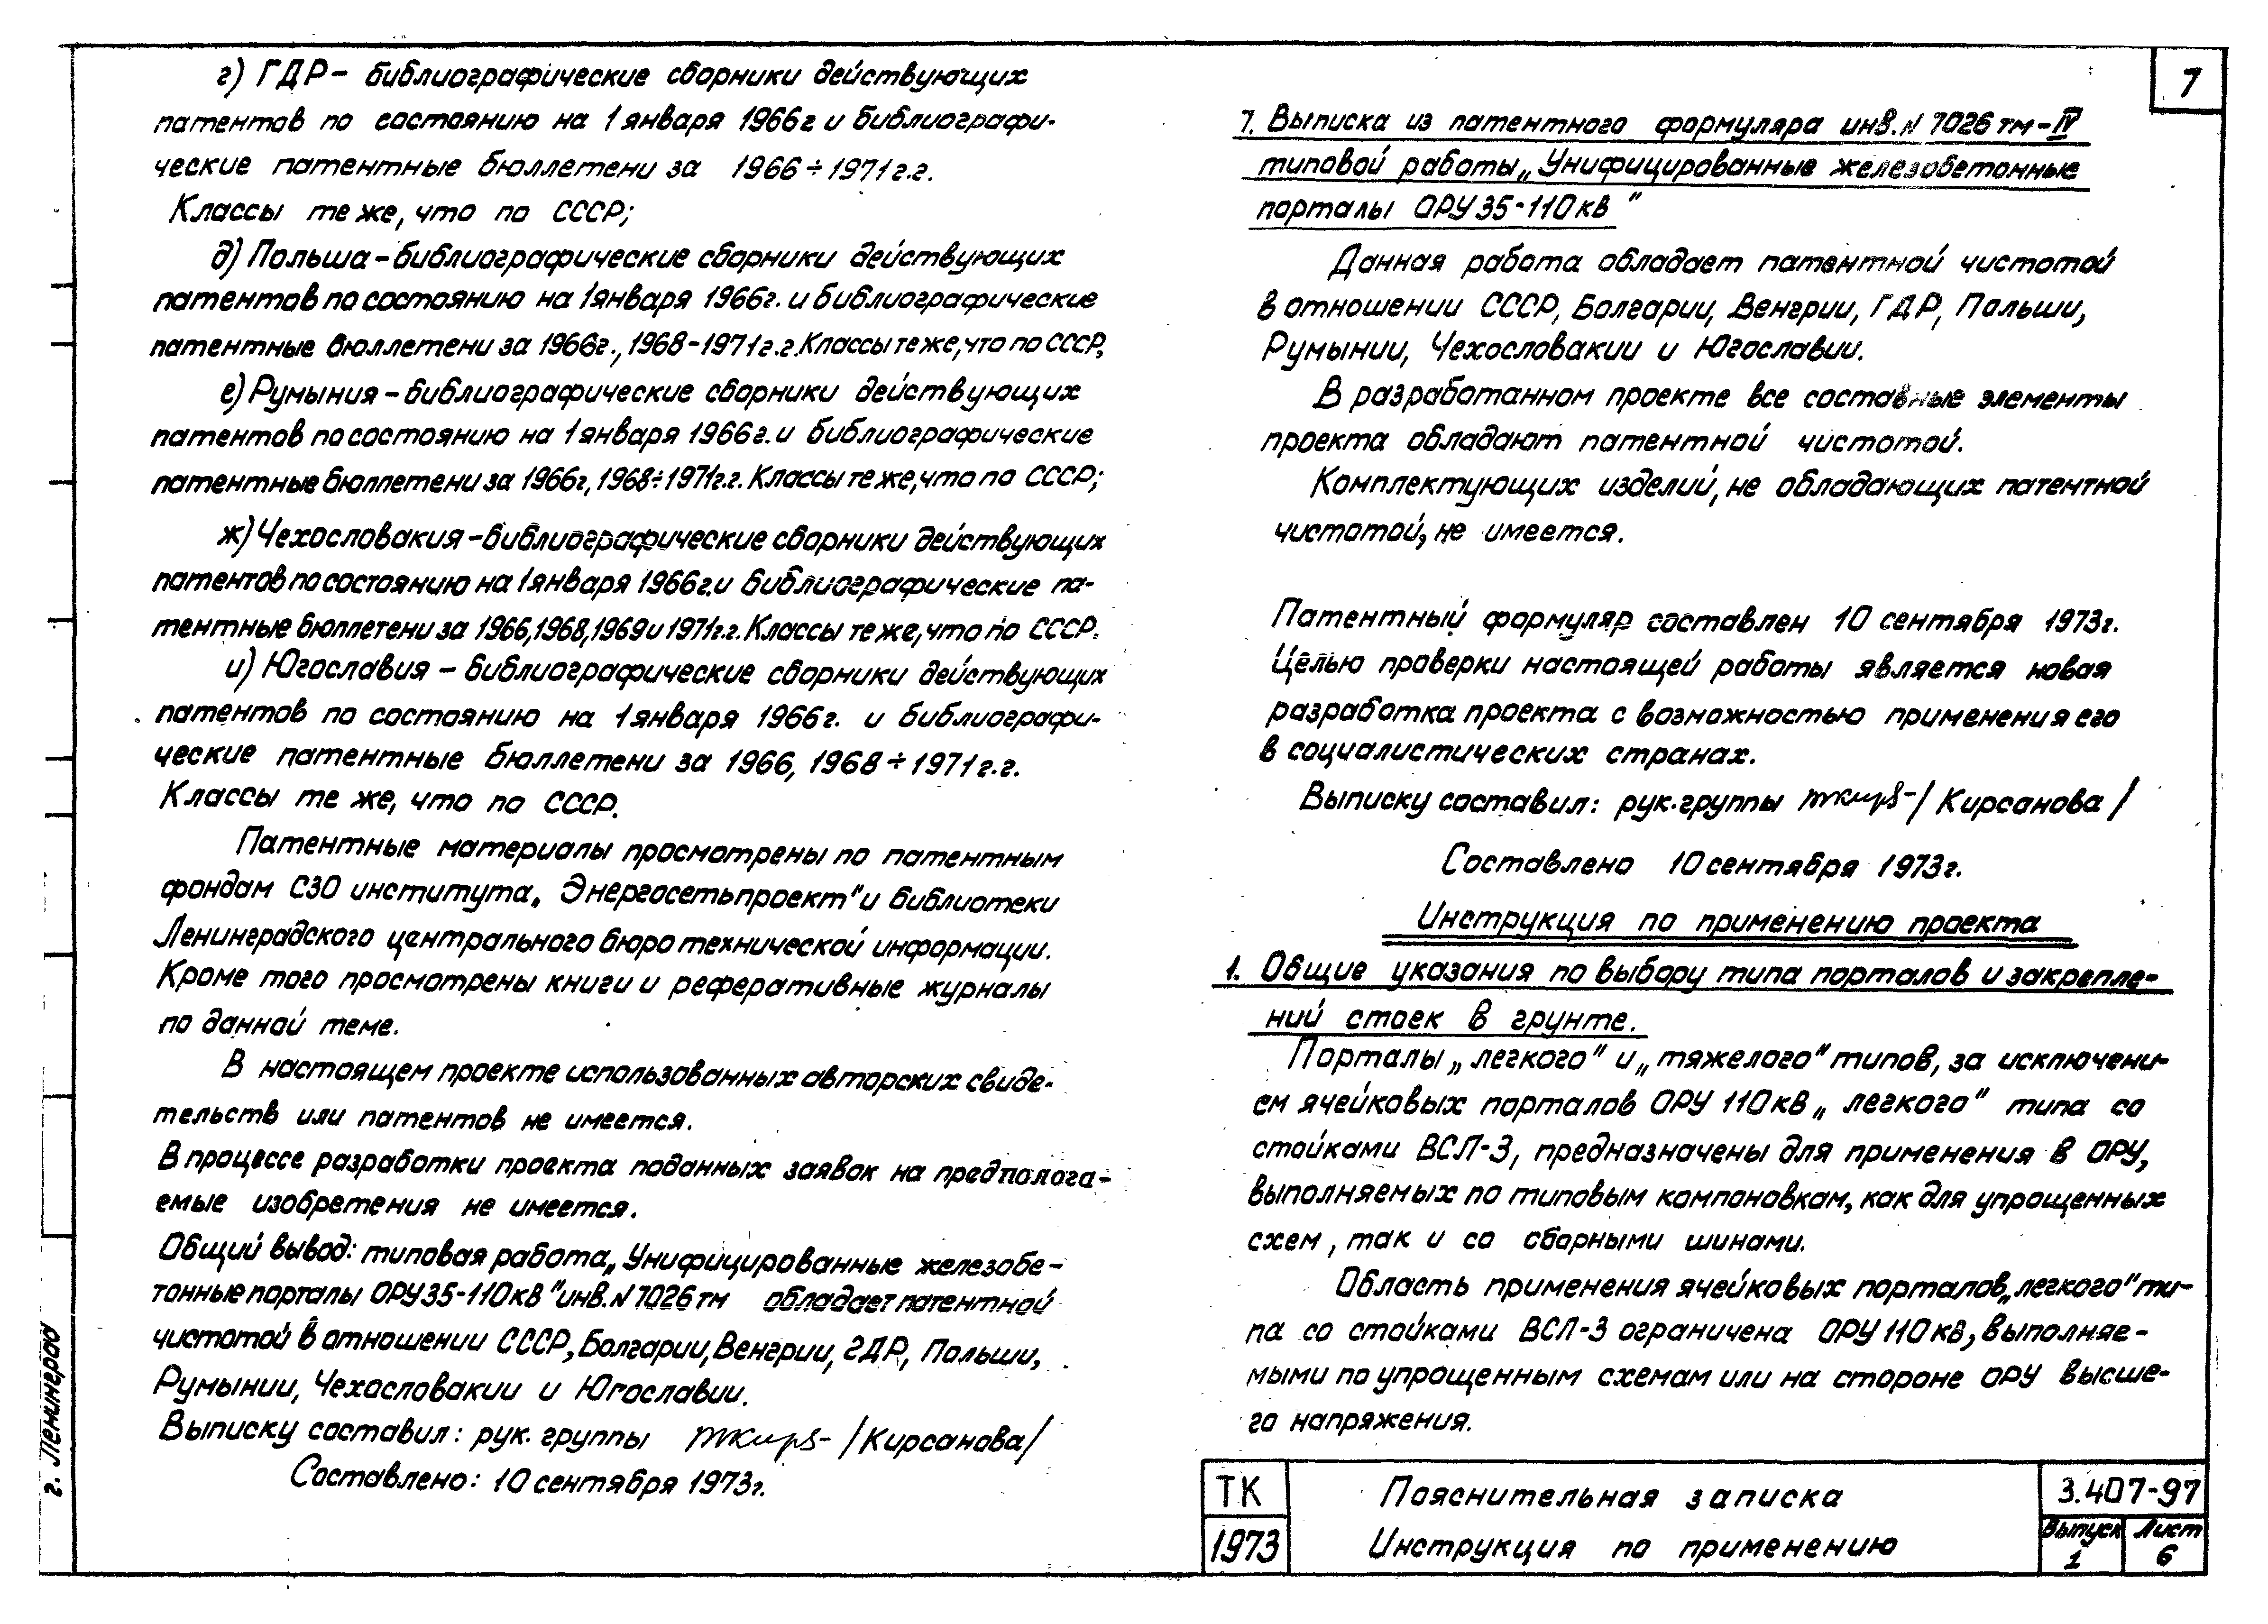 г) ГДР – библиографические сборники действующих
патентов по состоянию на 1 января 1966 г и библиографи-
ческие патентные бюллетени за 1966÷1971 г.г.
Классы те же, что по СССР;
д) Польша – библиографические сборники действующих
патентов по состоянию на 1 января 1966г. и библиографические
патентные бюллетени за 1966г., 1968-1971 г.г. Классы те же, что по СССР;
е) Румыния – библиографические сборники действующих
патентов по состоянию на 1 января 1966 г. и библиографические
патентные бюллетени за 1966г, 1968÷1971г.г. Классы те же, что по СССР;
ж) Чехословакия – библиографические сборники действующих
патентов по состоянию на 1 января 1966г. и библиографические па-
тентные бюллетени за 1966, 1968, 1969 и 1971г.г. Классы те же, что по СССР.
и) Югославия – библиографические сборники действующих
патентов по состоянию на 1 января 1966 г. и библиографи-
ческие патентные бюллетени за 1966, 1968÷1971 г.г.
Классы те же, что по СССР.
Патентные материалы просмотрены по патентным
фондам СЗО института „Энергосетьпроект" и библиотеки
Ленинградского центрального бюро технической информации.
Кроме того просмотрены книги и реферативные журналы
по данной теме.
В настоящем проекте использованных авторских свиде-
тельств или патентов не имеется.
В процессе разработки проекта поданных заявок на предполога-
емые изобретения не имеется.
Общий вывод: типовая работа „Унифицированные железобе-
тонные порталы ОРУ 35-110 кВ" инв. N 7026 тм обладает патентной
чистотой в отношении СССР, Болгарии, Венгрии, ГДР, Польши,
Румынии, Чехословакии и Югославии.
Выписку составил: рук. группы /Кирсанова/
Составлено: 10 сентября 1973г.
г. Ленинград
7
7. Выписка из патентного формуляра инв. N 7026 тм-IV
типовой работы „Унифицированные железобетонные
порталы ОРУ 35-110 кВ"
Данная работа обладает патентной чистотой
в отношении СССР, Болгарии, Венгрии, ГДР, Польши,
Румынии, Чехословакии и Югославии.
В разработанном проекте все составные элементы
проекта обладают патентной чистотой.
Комплектующих изделий, не обладающих патентной
чистотой, не имеется.
Патентный формуляр составлен 10 сентября 1973г.
Целью проверки настоящей работы является новая
разработка проекта с возможностью применения его
в социалистических странах.
Выписку составил: рук. группы /Кирсанова/
Составлено 10 сентября 1973г.
Инструкция по применению проекта
1. Общие указания по выбору типа порталов и закрепле-
ний стоек в грунте.
Порталы „легкого" и „тяжелого" типов, за исключени-
ем ячейковых порталов ОРУ 110 кВ „легкого" типа со
стойками ВСЛ-3, предназначены для применения в ОРУ,
выполняемых по типовым компоновкам, как для упрощенных
схем, так и со сборными шинами.
Область применения ячейковых порталов „легкого" ти-
па со стойками ВСЛ-3 ограничена ОРУ 110 кВ, выполняе-
мыми по упрощенным схемам или на стороне ОРУ высше-
го напряжения.
ТК
1973
Пояснительная записка
Инструкция по применению
3.407-97
Выпуск Лист
1 6